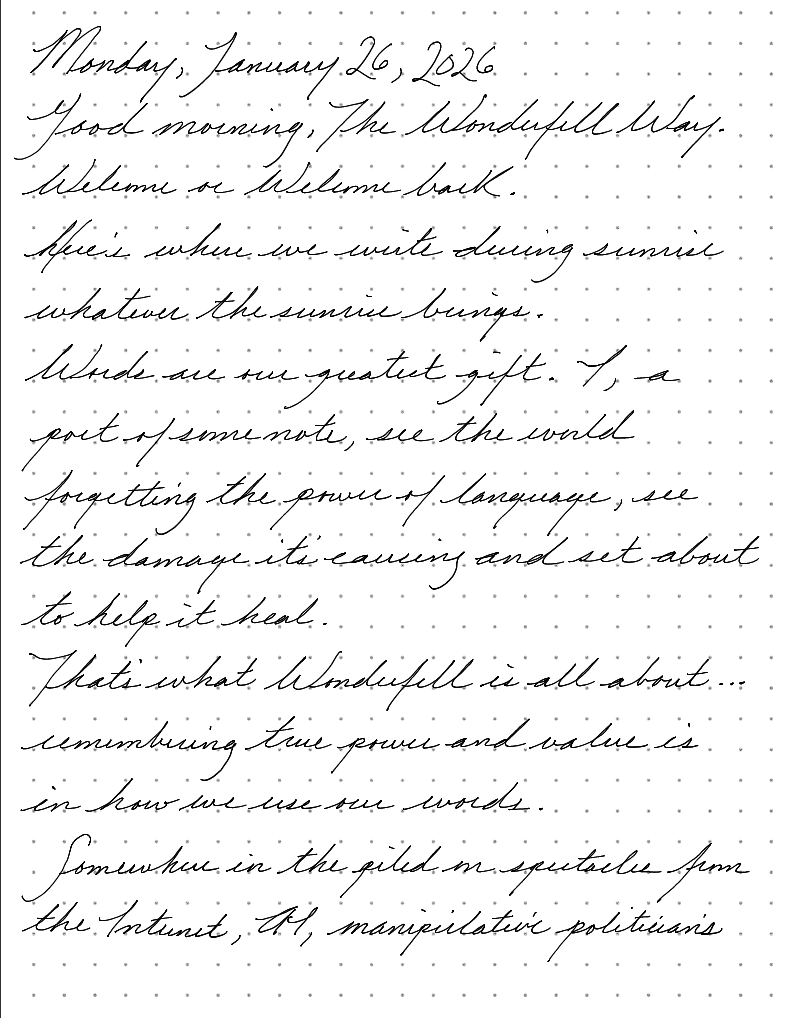 Monday, January 26, 2026
Good morning, The Wonderfell Way.
Welcome or Welcome back.
Here's where we write during sunrise
whatever the sunrise brings.
Words are our greatest gift. I, a
poet of some note, see the world
forgetting the power of language, see
the damage it's causing and set about
to help it heal.
That's what Wonderfell is all about...
remembering true power and value is
in how we use our words.
Somewhere in the piled on spectacles from
the Internet, AI, manipulative politicians